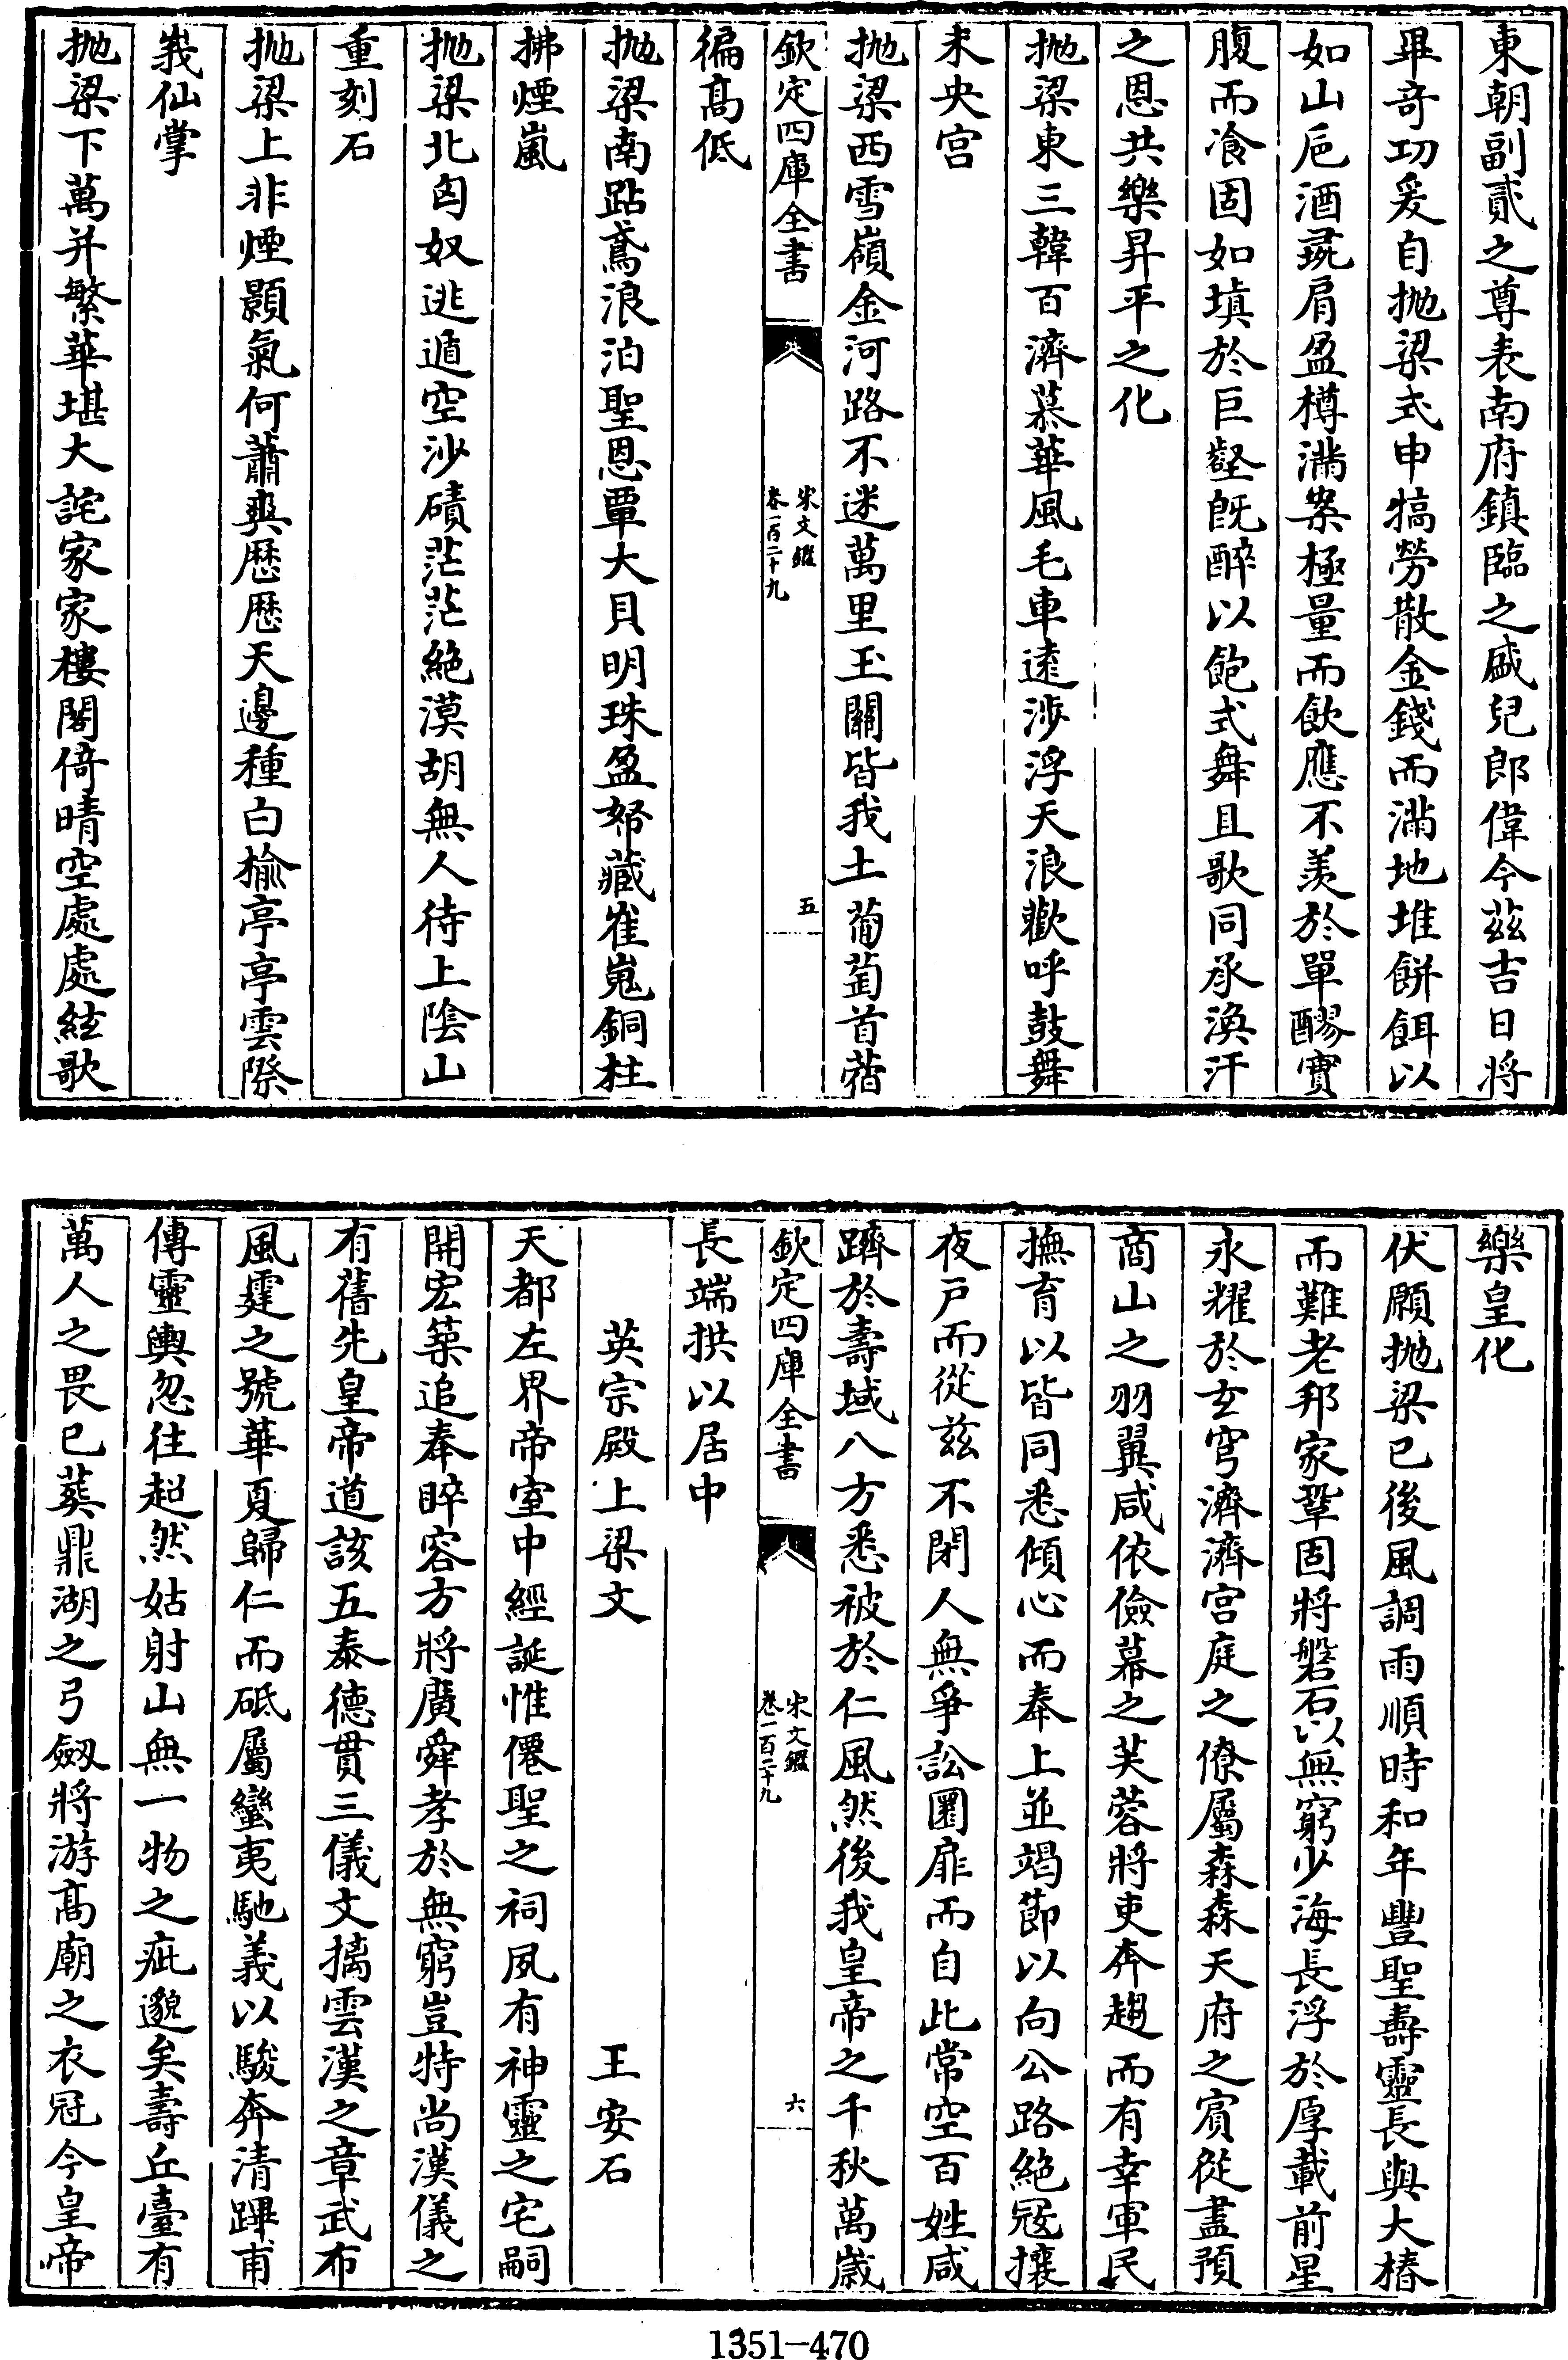 東朝副貳之尊表南府鎮臨之戚兒郎偉今茲吉日將
畢奇功爰自抛梁式申犒勞散金錢而滿地堆餅餌以
如山巵酒彘肩盈樽滿案極量而飲應不羨於單醪實
腹而飡固如填於巨壑旣醉以飽式舞且歌同承渙汗
之恩共樂昇平之化
抛梁東三韓百濟慕華風毛車遠涉浮天浪歡呼鼓舞
未央宮
抛梁西雪嶺金河路不迷萬里玉關皆我土葡萄首蓿
欽定四庫全書
宋文鑑
卷一百二十九
五
徧髙低
抛梁南跕鳶浪泊聖恩覃大貝明珠盈帑藏崔嵬銅柱
拂煙嵐
抛梁北匈奴逃遁空沙磧茫茫絶漠胡無人待上隂山
重刻石
抛梁上非煙顥氣何蕭爽歴歴天邊種白榆亭亭雲際
峩仙掌
抛梁下萬井繁華堪大詫家家樓閣倚晴空處處絃歌
樂皇化
伏願抛梁已後風調雨順時和年豐聖壽靈長與大椿
而難老邦家鞏固將磐石以無窮少海長浮於厚載前星
永耀於玄穹濟濟宫庭之僚屬森森天府之賓從盡預
商山之羽翼咸依儉幕之芙蓉將吏奔趨而有幸軍民
撫育以皆同悉傾心而奉上並竭節以向公路絶冦攘
夜戸而從茲不閉人無爭訟圜扉而自此常空百姓咸
躋於壽域八方悉被於仁風然後我皇帝之千秋萬歲
欽定四庫全書
宋文鑑
卷一百二十九
六
長端拱以居中
英宗殿上梁文 王安石
天都左界帝室中經誕惟僊聖之祠夙有神靈之宅嗣
開宏築追奉睟容方將廣舜孝於無窮豈特尚漢儀之
有舊先皇帝道該五泰德貫三儀文摛雲漢之章武布
風霆之號華夏歸仁而砥屬蠻夷馳義以駿奔清蹕甫
傳靈輿忽往超然姑射山無一物之疵邈矣壽丘臺有
萬人之畏已葬鼎湖之弓劔將游髙廟之衣冠今皇帝
1351-470